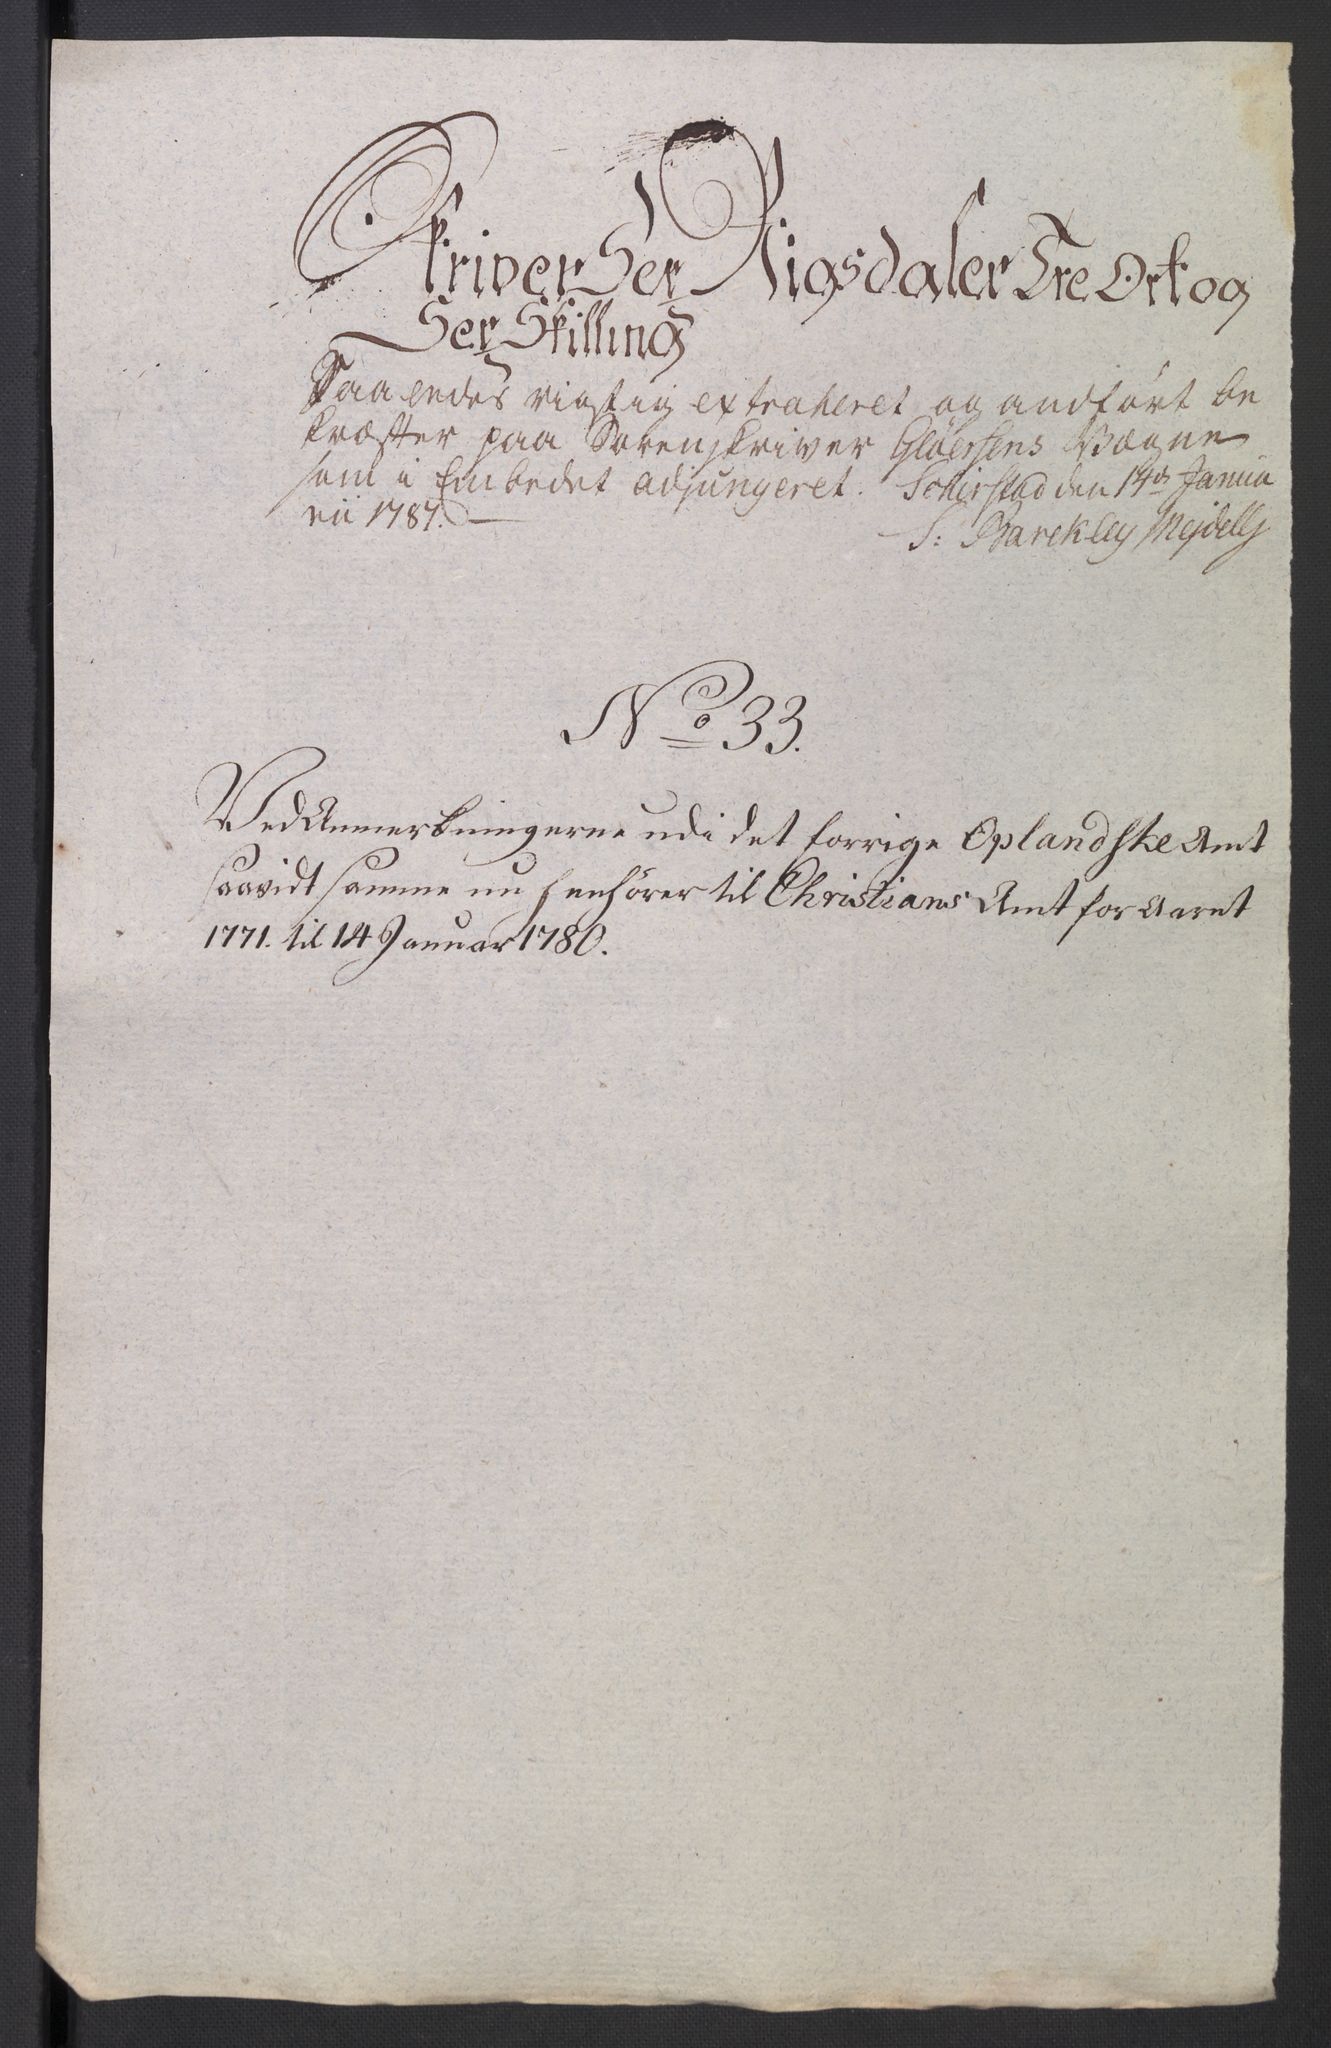 Skriver Sex Rigsdaler Tre Ort og
Sex Skilling
Saaledes rigtig extraheret og andført be
kræfter paa Sorenskriver Gløersens Vægne
som i Embedet adjungeret. Schirstad den 14de Janua
rii 1787.
S: Barckley Mejdell
No 33.
Ved Anmerkningerne udi det forrige Oplandske Amt
saavidt samme nu henhører til Christians Amt for Aaret
1771. til 14 Januar 1780.